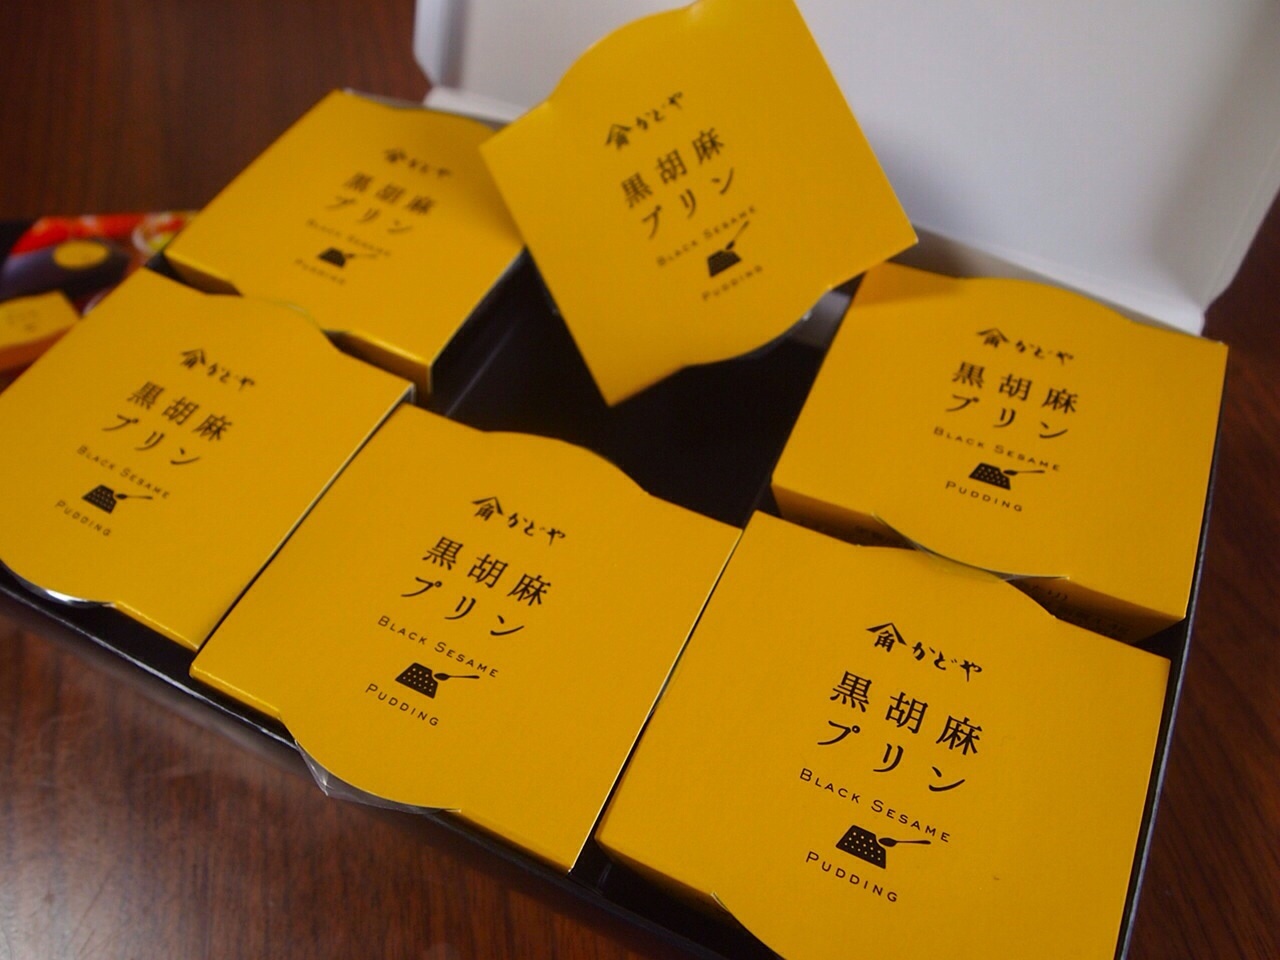 角かどや
黒胡麻
プリン
BLACK SESAME
PUDDING
角かどや
黒胡麻
プリン
BLACK SESAME
PUDDING
角かどや
黒胡麻
プリン
BLACK SESAME
PUDDING
角かどや
黒胡麻
プリン
BLACK SESAME
PUDDING
角かどや
黒胡麻
プリン
BLACK SESAME
PUDDING
角かどや
黒胡麻
プリン
BLACK SESAME
PUDDING